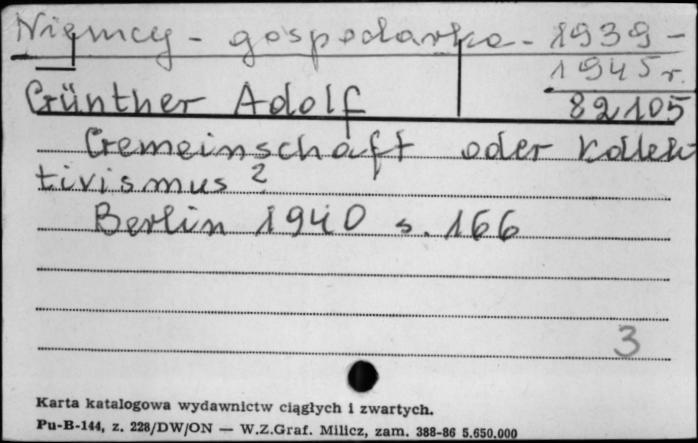 Niemcy - gospodarka - 1939 -
1945 r.
Günther Adolf 82105
Gemeinschaft oder Kollek
tivismus?
Berlin 1940 s. 166
3
Karta katalogowa wydawnictw ciągłych i zwartych.
Pu-B-144, z. 228/DW/ON — W.Z.Graf. Milicz, zam. 388-86 5.650.000